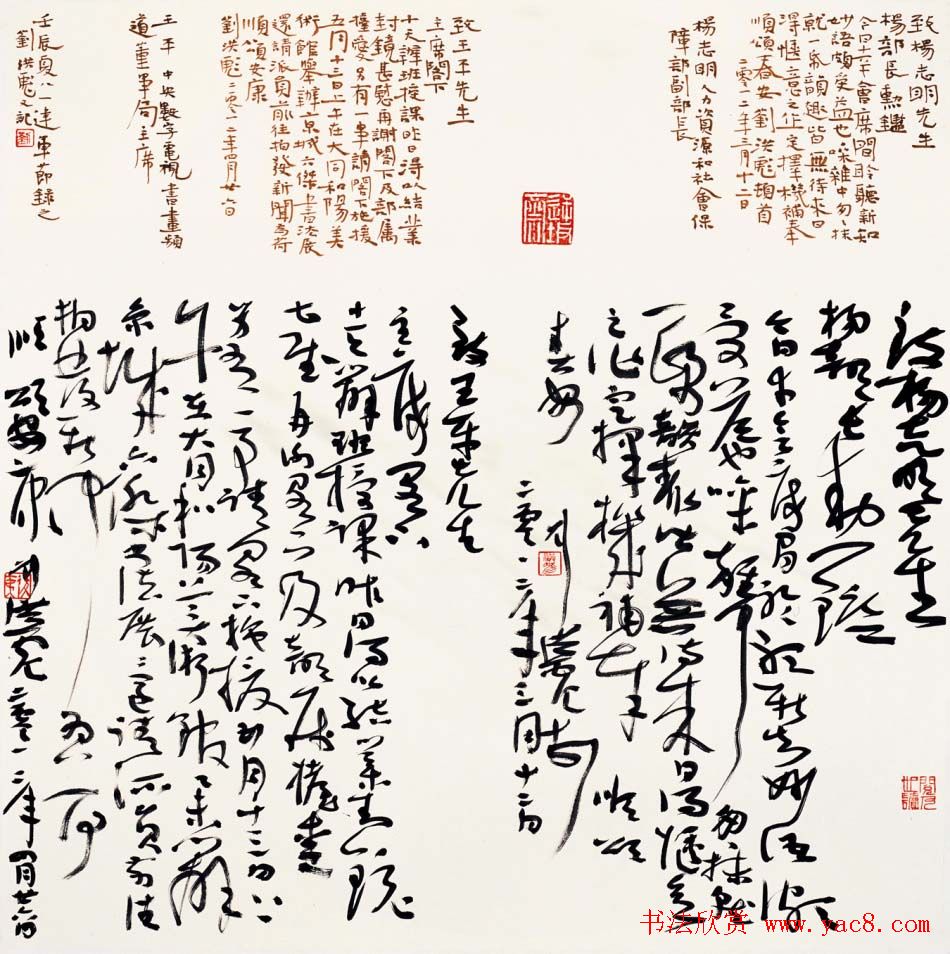 致楊志明先生
楊部長勳鑒
今日 會席間聆聽新知
妙語頗受益也嘈雜中匆匆抹
就一紙韻趣皆無待來日
得愜意之作定擇機補奉
順頌春安劉洪彪頓首
二零一二年三月十二日
楊志明人力資源和社會保
障部副部長
致王平先生
主席閣下
十天辦班授課昨日得以結業
封鏡甚慰再謝閣下及部属
擡愛另有一事請閣下施援
五月十三日上午在大同和陽美
術館舉辦京城六傑書法展
還請派員前往拍發新聞為荷
順頌安康
劉洪彪二零一二年四月廿六日
王平 中央數字電視書畫頻
道董事局主席
壬辰夏八一建軍節錄之
劉洪彪又記
致楊志明先生
楊部長勳鑒
今日 會席間聆聽新知妙語頗
受益也嘈雜中匆匆抹就
一紙韻趣皆無待來日得愜意
之作定擇機補奉 順頌
春安 劉洪彪頓首
二零一二年三月十二日
致王平先生
主席閣下
十天辦班授課昨日得以結業封鏡
甚慰再謝閣下及部属擡愛
另有一事請閣下施援五月十三日上
午在大同和陽美術館舉辦
京城六傑書法展還請派員前往
拍發新聞為荷
順頌安康 劉洪彪二零一二年四月廿六日
书法欣赏 www.yac8.com